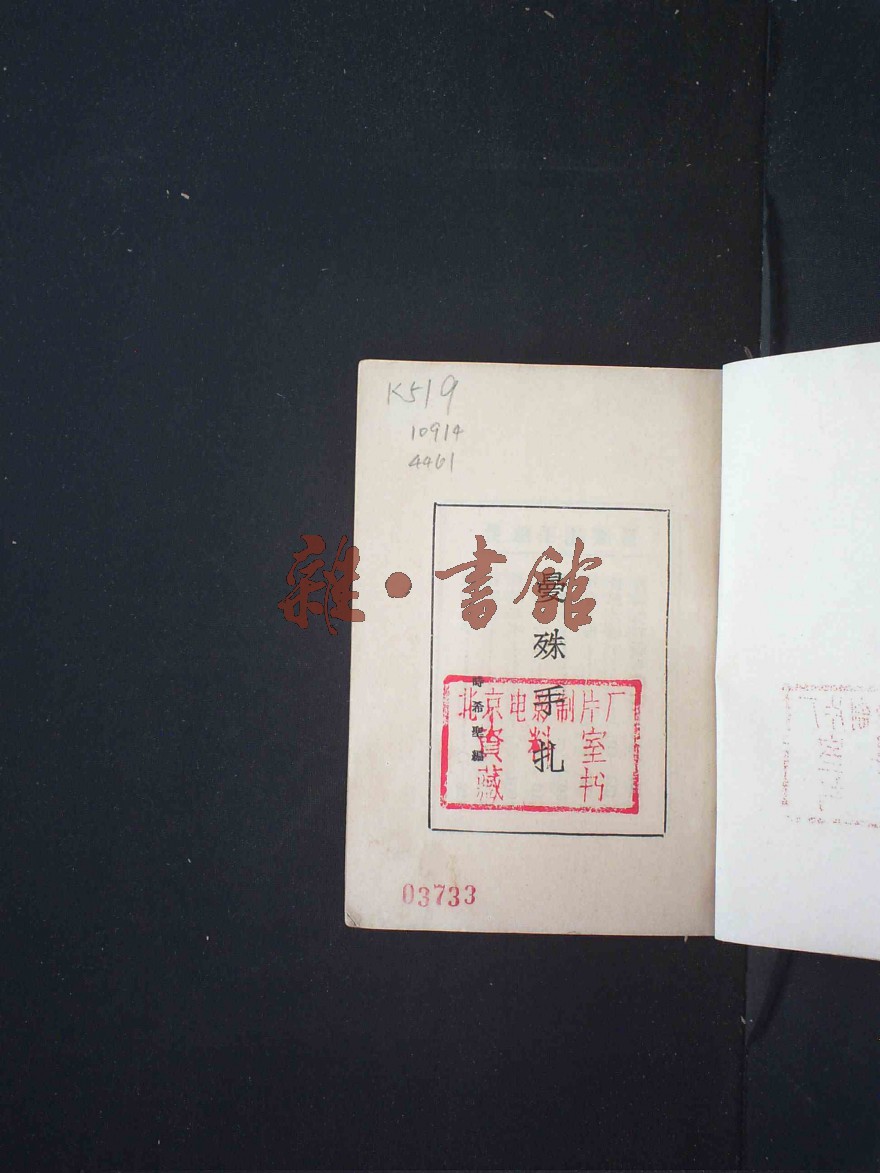 K519
10914
4461
雜·書館
曼殊手札
時希聖編
北京电影制片厂
資料室
藏书
03733